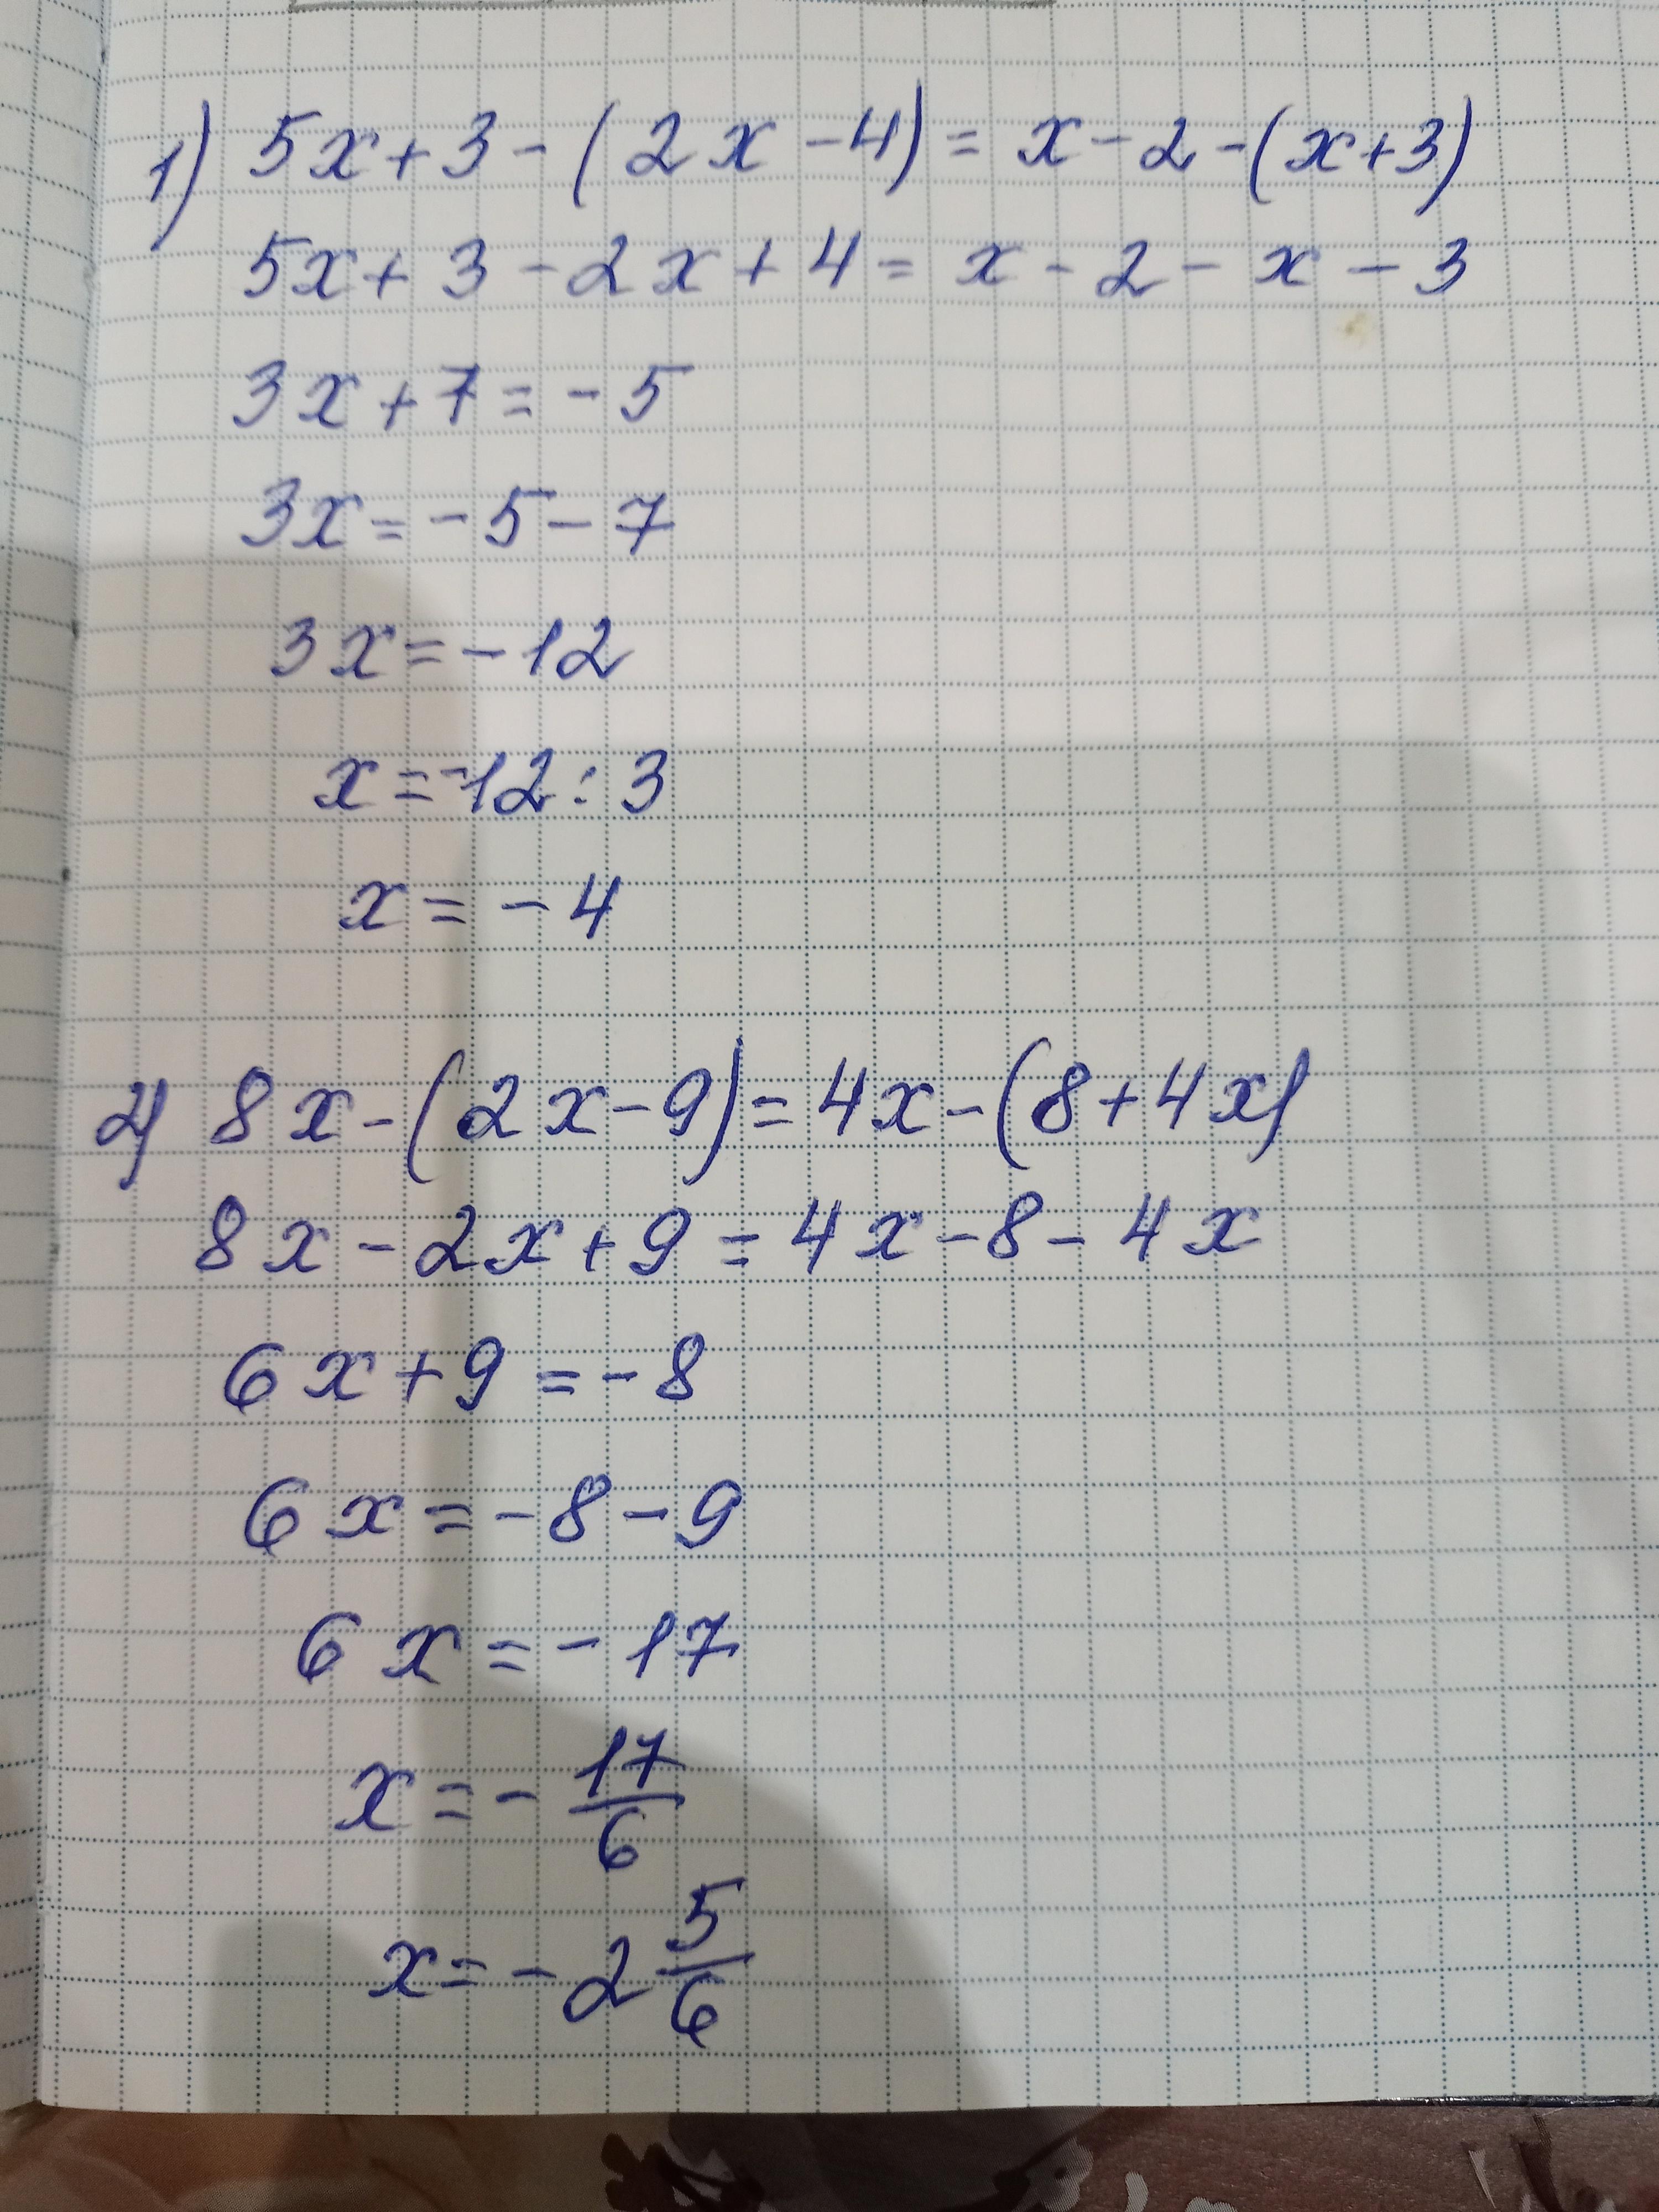 1) 5x+3-(2x-4)=x-2-(x+3)
5x+3-2x+4=x-2-x-3
3x+7=-5
3x=-5-7
3x=-12
x=-12:3
x=-4
2) 8x-(2x-9)=4x-(8+4x)
8x-2x+9=4x-8-4x
6x+9=-8
6x=-8-9
6x=-17
x=-17/6
x=-2 5/6